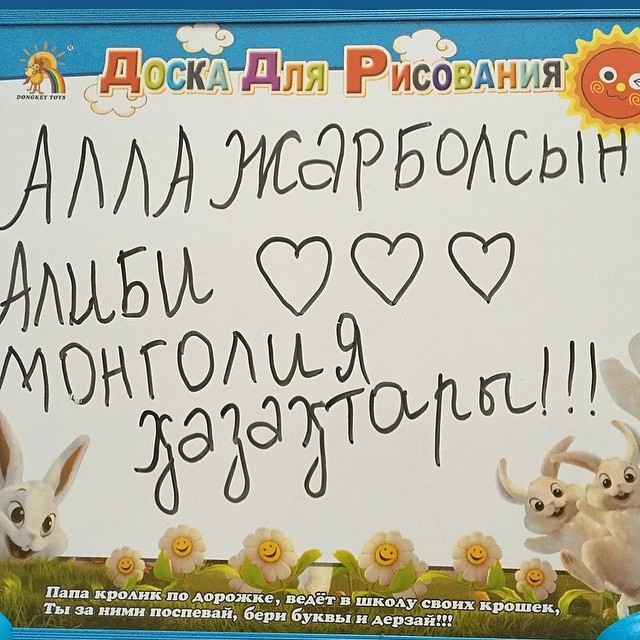 DONGKEY TOYS ®
Доска Для Рисования
АЛЛА ЖАРБОЛСЫН
АЛИБИ ♡ ♡ ♡
МОНГОЛИЯ
қазақтары!!!
Папа кролик по дорожке, ведёт в школу своих крошек,
Ты за ними поспевай, бери буквы и дерзай!!!